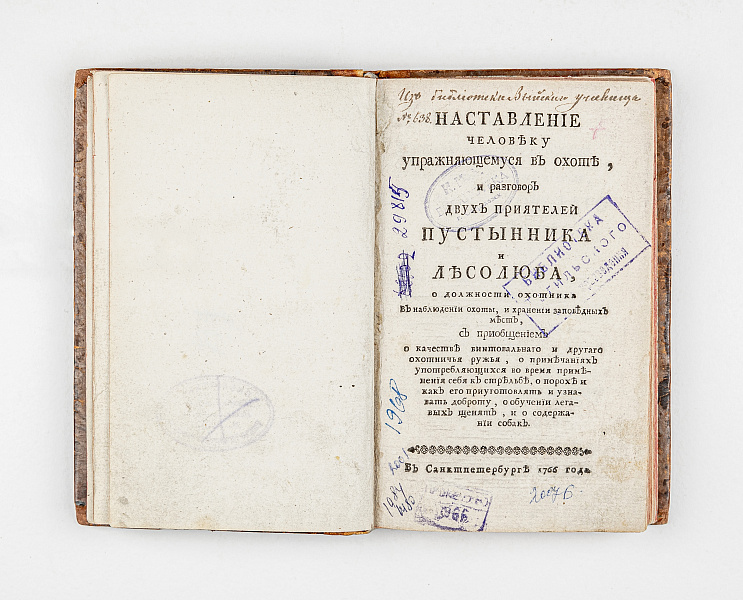 Изъ библіотеки Выйскаго училища
№ 7638.
НАСТАВЛЕНІЕ
ЧЕЛОВѢКУ
упражняющемуся въ охотѣ,
и разговоръ
двухъ приятелей
ПУСТЫННИКА
и
ЛѢСОЛЮБА,
о должности охотника
въ наблюденіи охоты, и храненіи заповѣдныхъ
мѣстъ,
съ приобщеніемъ
о качествѣ винтовальнаго и другаго
охотничья ружья, о примѣчаніяхъ
употребляющихся во время примѣ-
ненія себя къ стрѣльбѣ, о порохѣ и
какъ его приуготовлять и узна-
вать доброту, о обученіи лега-
выхъ щенятъ, и о содержа-
ніи собакъ.
Въ Санктпетербургѣ 1766 года.
29815
БИБЛИОТЕКА
1968
1966
20076